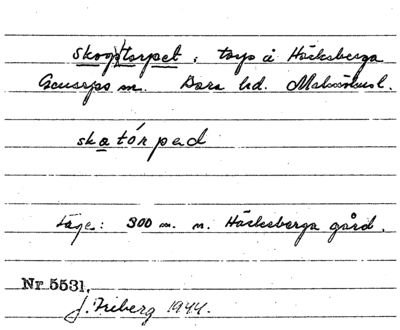 skog|torpet : torp å Häcksberga
Genarps sn. Bara hd. Malmöhus l.
skatórpəd
Läge : 300 m. n. Häcksberga gård.
Nr 5531.
J. Friberg 1944.